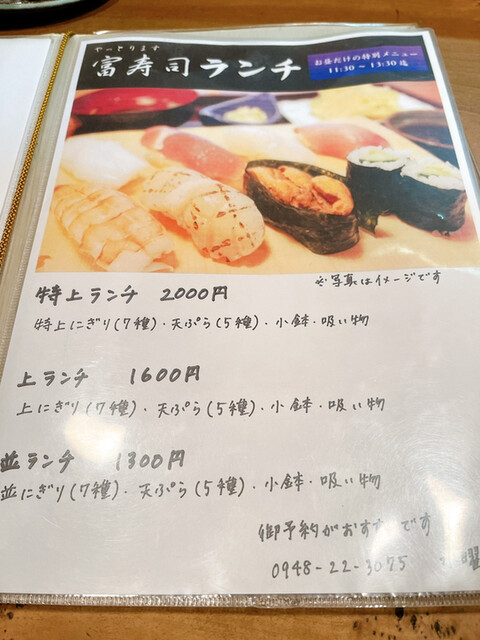 やーとります
富寿司ランチ
お昼だけの特別メニュー
11:30～13:30迄
※写真はイメージです
特上ランチ 2000円
特上にぎり(7種)・天ぷら(5種)・小鉢・吸い物
上ランチ 1600円
上にぎり(7種)・天ぷら(5種)・小鉢・吸い物
並ランチ 1300円
並にぎり(7種)・天ぷら(5種)・小鉢・吸い物
御予約がおすすめです
0948-22-3075